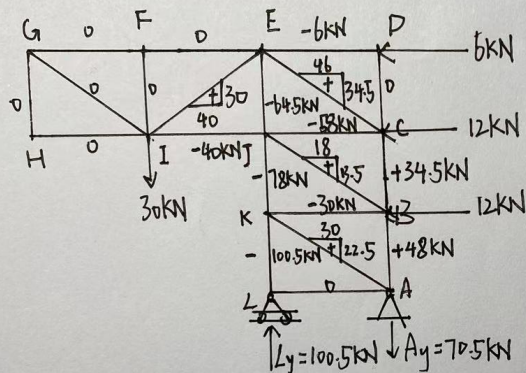 G 0 F 0 E -6KN D 6KN
46
+ 34.5 0
0 0 0 + 30 -64.5KN
40 -58KN C 12KN
H 0 I -40KN J
18
+ 13.5 +34.5KN
30KN - 78KN
-30KN B 12KN
K
30
+ 22.5 +48KN
- 100.5KN
L 0 A
Ly=100.5KN Ay=70.5KN